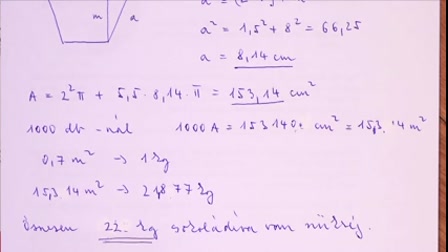 m
a
a² = 1,5² + 8² = 66,25
a = 8,14 cm
A = 2²π + 5,5 · 8,14 · π = 153,14 cm²
1000 db - nál 1000 A = 153 140, cm² = 15,3 14 m²
0,7 m² → 1 kg
15,3 14 m² → 21,8 77 kg
22 kg csokoládéra van szükség.